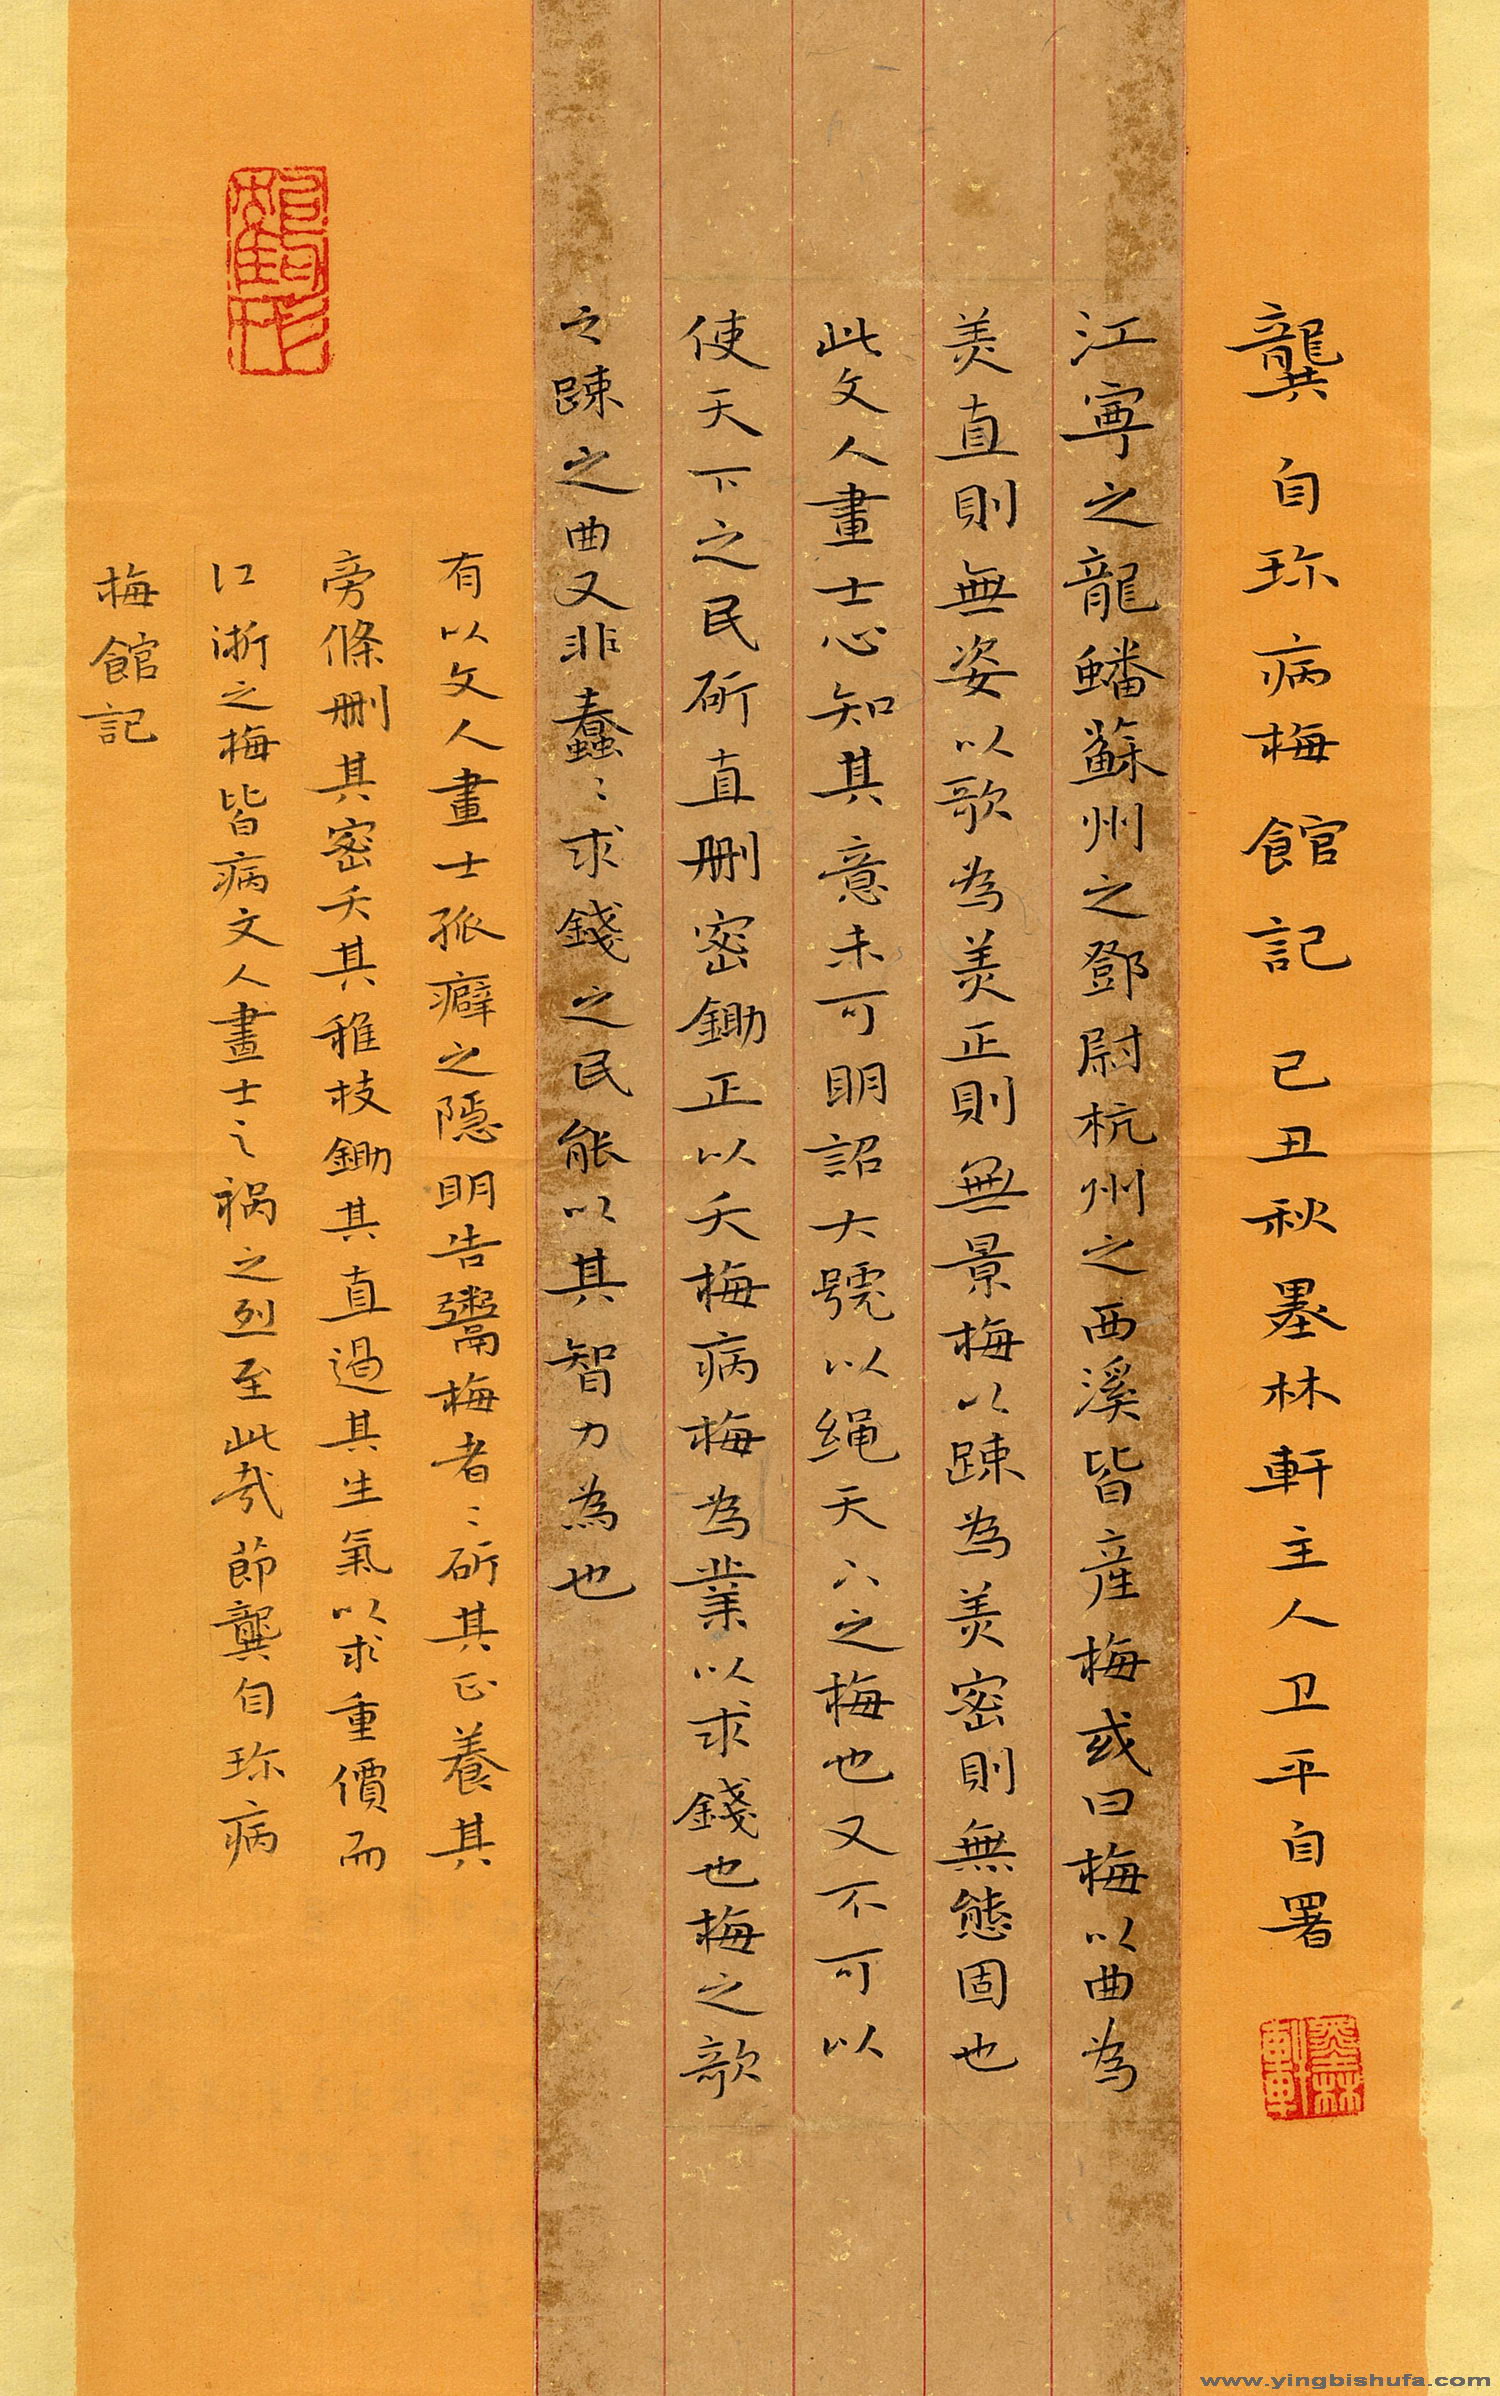 龔自珍病梅館記 己丑秋墨林軒主人卫平自署
墨林軒
江寧之龍蟠蘇州之鄧尉杭州之西溪皆產梅或曰梅以曲為
美直則無姿以欹為美正則無景梅以踈為美密則無態固也
此文人畫士心知其意未可明詔大號以绳天下之梅也又不可以
使天下之民斫直刪密鋤正以夭梅病梅為業以求錢也梅之欹
之踈之曲又非蠢〻求錢之民能以其智力為也
有以文人畫士孤癖之隱明告鬻梅者〻斫其正養其
旁條刪其密夭其稚枝鋤其直遏其生氣以求重價而
江浙之梅皆病文人畫士之禍之烈至此哉節龔自珍病
梅館記
www.yingbishufa.com